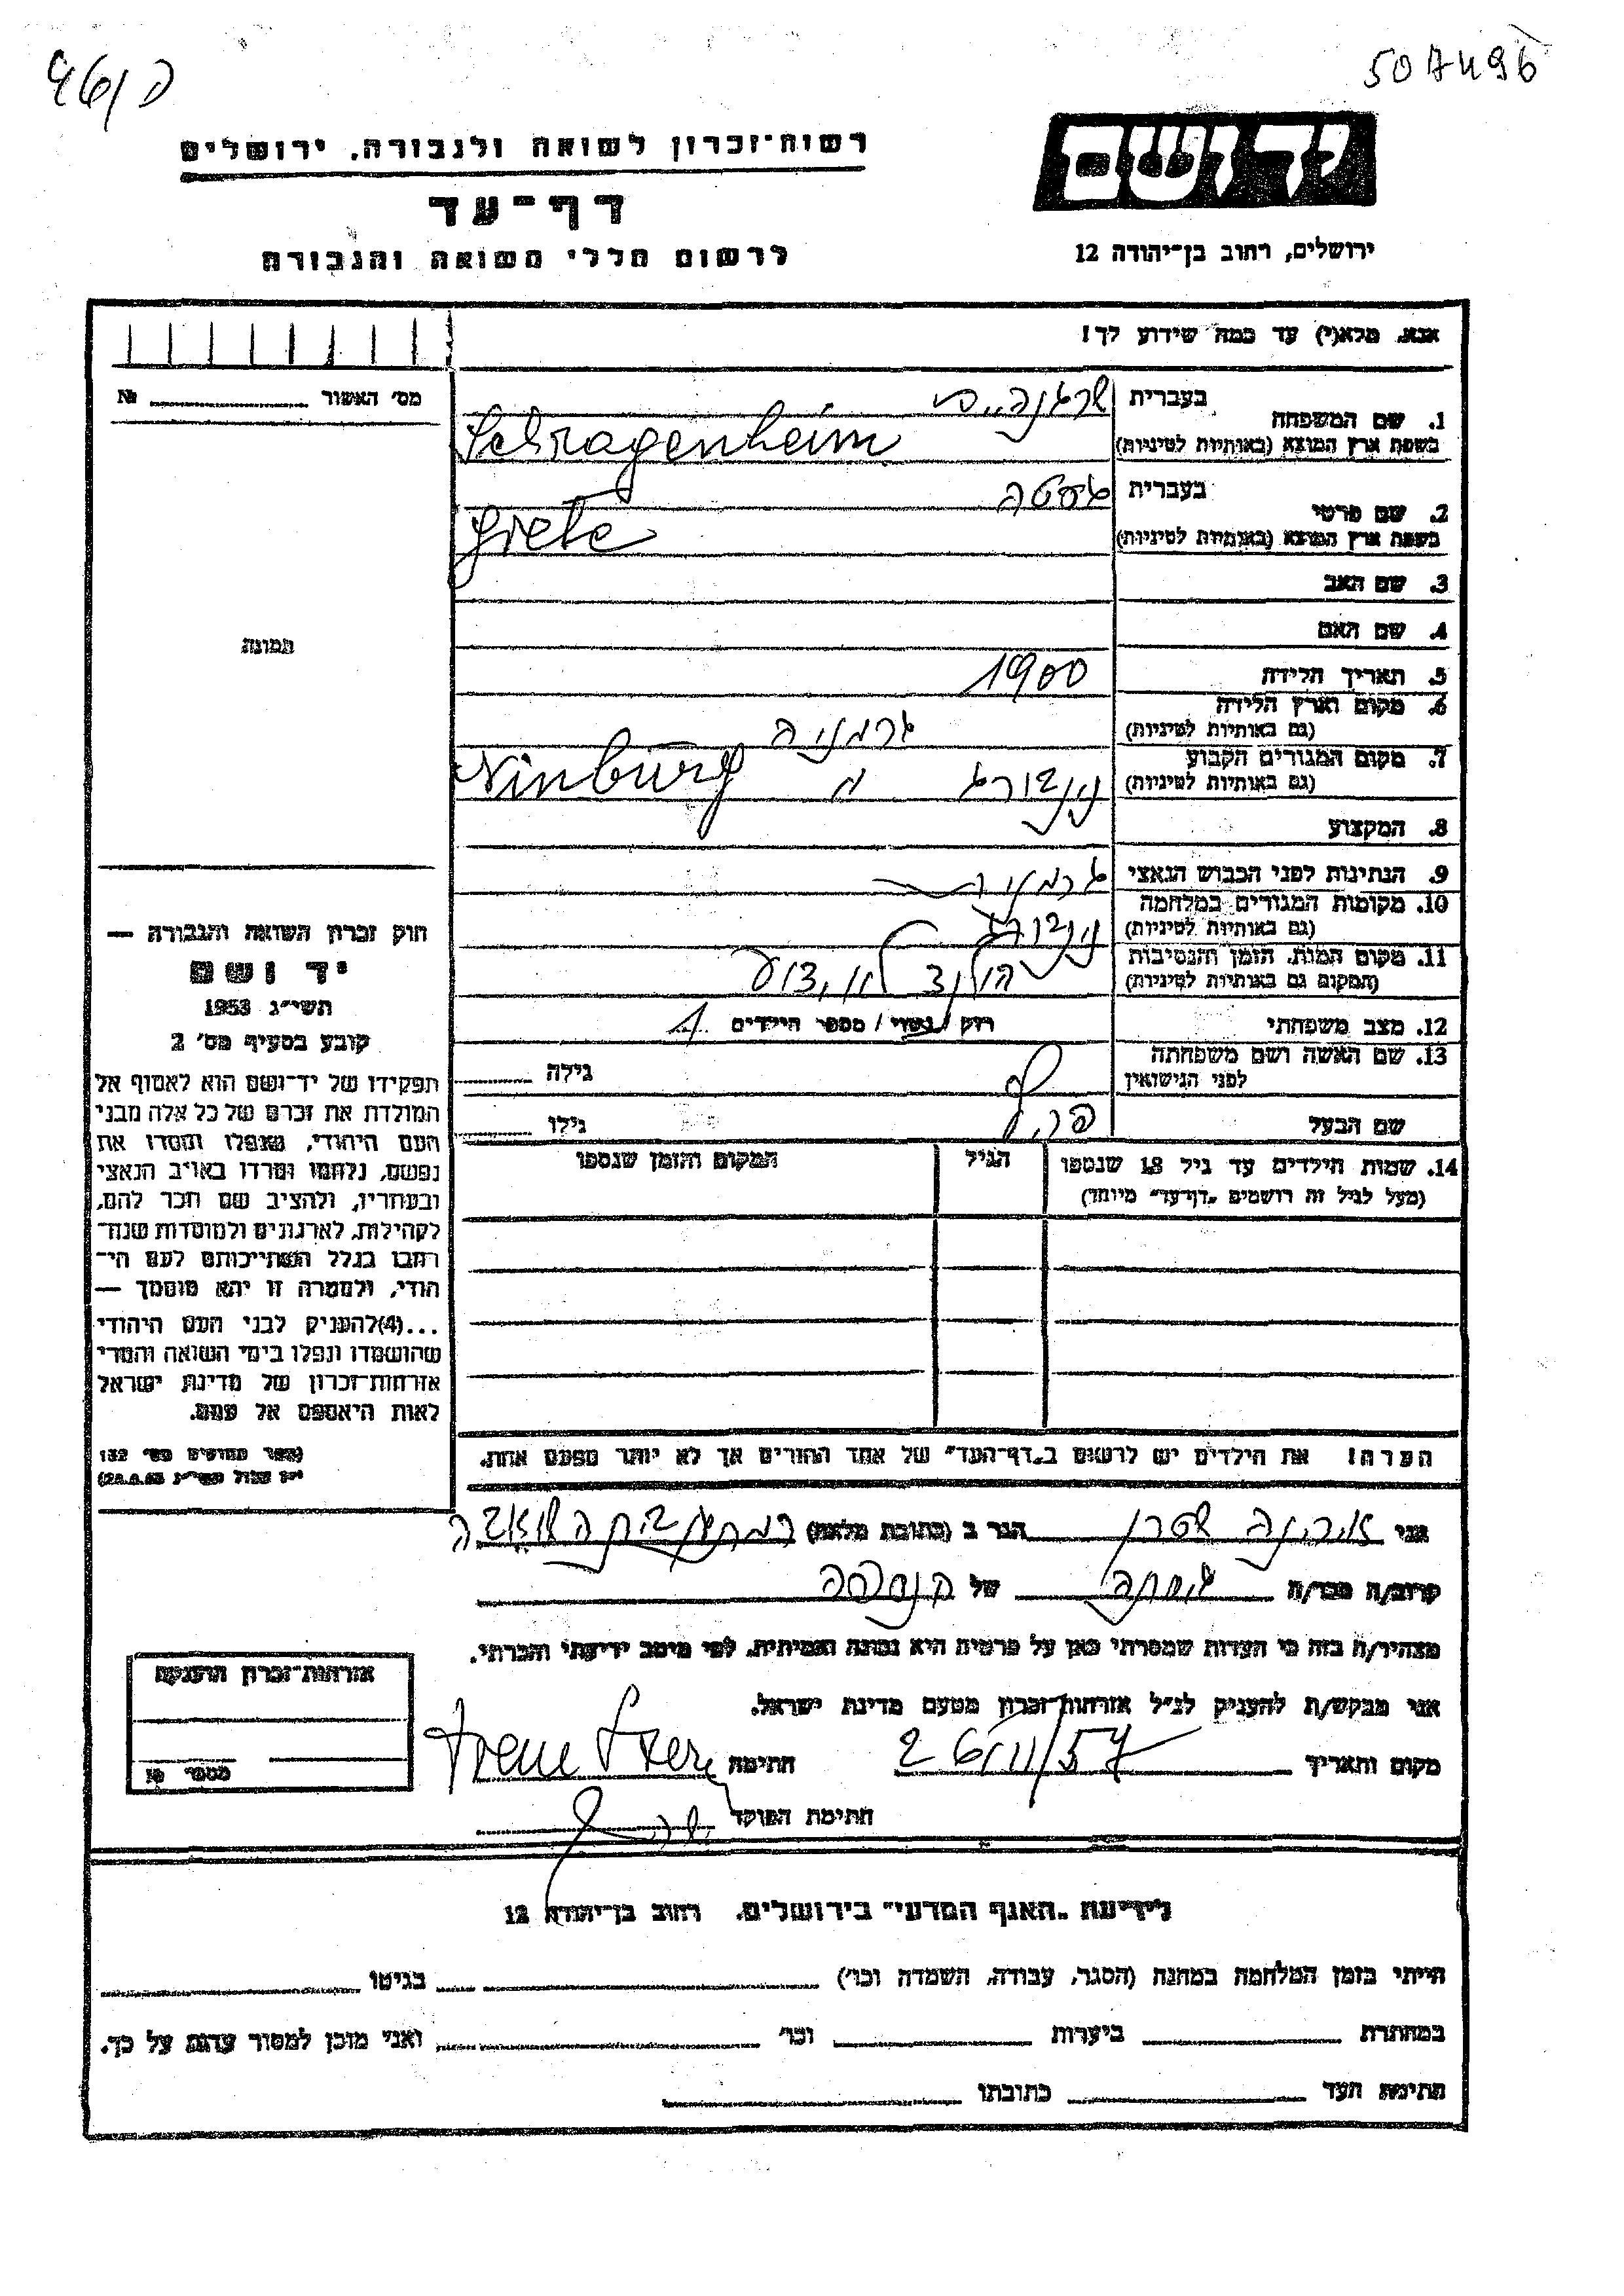 46/פ
507496
יד ושם
ירושלים, רחוב בן־יהודה 12
רשות־זכרון לשואה ולגבורה, ירושלים
דף־עד
לרשום חללי השואה והגבורה
אנא, מלא(י) עד כמה שידוע לך!
מס' האשור №
תמונה
1. שם המשפחה
בעברית שרגנהיים
בשפת ארץ המוצא (באותיות לטיניות) Schragenheim
2. שם פרטי
בעברית גרטה
בשפת ארץ המוצא (באותיות לטיניות) Grete
3. שם האב
4. שם האם
5. תאריך הלידה 1900
6. מקום וארץ הלידה
(גם באותיות לטיניות) גרמניה
7. מקום המגורים הקבוע
(גם באותיות לטיניות) נינבורג Ninburg
8. המקצוע
9. הנתינות לפני הכבוש הנאצי גרמניה
10. מקומות המגורים במלחמה
(גם באותיות לטיניות) נינבורג
11. מקום המות, הזמן והנסיבות
(המקום גם באותיות לטיניות) לא ידוע
12. מצב משפחתי רווק / נשוי / מספר הילדים 1
13. שם האשה ושם משפחתה
לפני הנישואין
גילה
שם הבעל
גילו
14. שמות הילדים עד גיל 18 שנספו
(מעל לגיל זה רושמים "דף־עד" מיוחד)
הגיל
המקום והזמן שנספו
הערה! את הילדים יש לרשום ב"דף־העד" של אחד ההורים אך לא יותר מפעם אחת.
חוק זכרון השואה והגבורה —
יד ושם
תשי"ג 1953
קובע בסעיף מס' 2
תפקידו של יד־ושם הוא לאסוף אל
המולדת את זכרם של כל אלה מבני
העם היהודי, שנפלו ומסרו את
נפשם, נלחמו ומרדו באויב הנאצי
ובעוזריו, ולהציב שם וזכר להם,
לקהילות, לארגונים ולמוסדות שנח־
רבו בגלל השתייכותם לעם הי־
הודי, ולמטרה זו יהא מוסמך —
...(4)להעניק לבני העם היהודי
שהושמדו ונפלו בימי השואה והמרי
אזרחות־זכרון של מדינת ישראל
לאות היאספם אל עמם.
(ספר החוקים מס' 132
אני אירנה שטרן הגר ב (כתובת מלאה)
קרוב/ה מכר/ה של הנספה
מצהיר/ה בזה כי העדות שמסרתי כאן על פרטיה היא נכונה ואמיתית, לפי מיטב ידיעתי והכרתי.
אני מבקש/ת להעניק לנ"ל אזרחות־זכרון מטעם מדינת ישראל.
מקום ותאריך 26/11/57 חתימה Irene
חתימת הפוקד
אזרחות־זכרון הוענקה
מספר №
לידיעת "האגף המדעי" בירושלים, רחוב בן־יהודה 12
הייתי בזמן המלחמה במחנה (הסגר, עבודה, השמדה וכו') בגיטו
במחתרת ביערות וכו' ואני מוכן למסור עדות על כך.
חתימת העד כתובתו